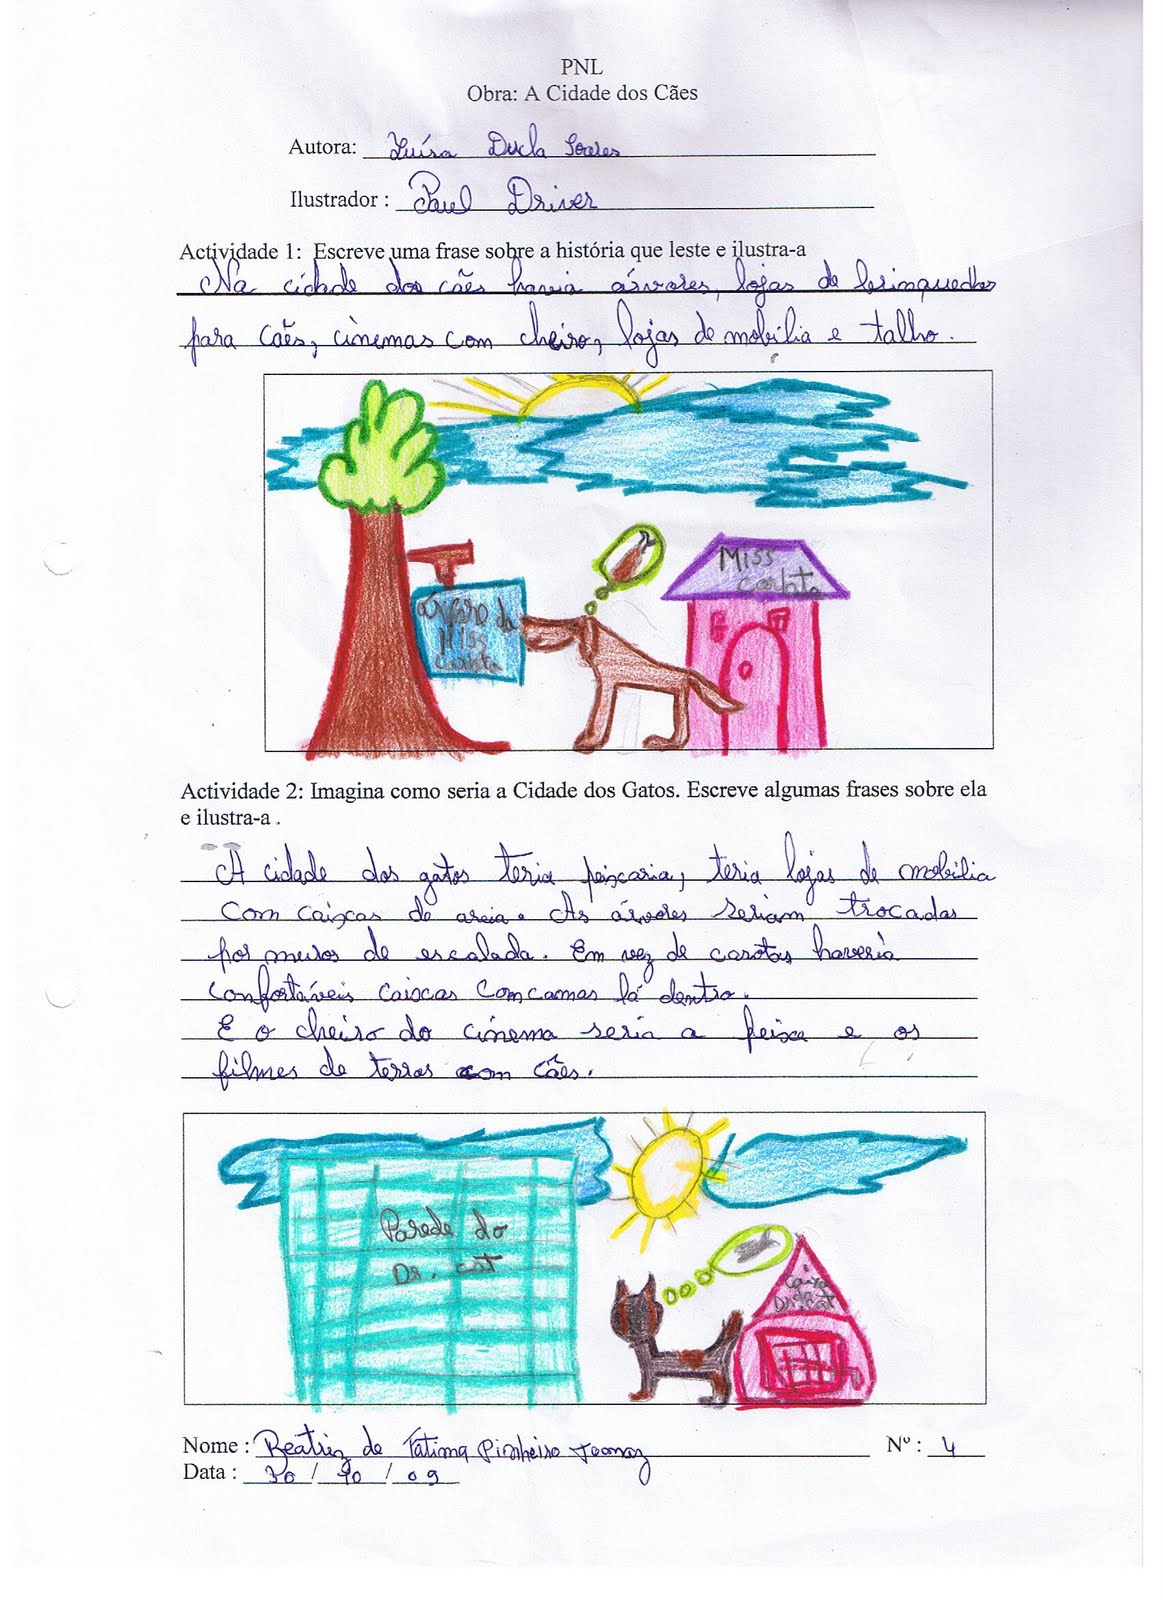 PNL
Obra: A Cidade dos Cães
Autora: Luísa Ducla Soares
Ilustrador : Paul Driver
Actividade 1: Escreve uma frase sobre a história que leste e ilustra-a
Na cidade dos cães havia árvores, lojas de brinquedos
para cães, cinemas com cheiro, lojas de mobília e talho.
Miss
árvore da
Miss
Actividade 2: Imagina como seria a Cidade dos Gatos. Escreve algumas frases sobre ela
e ilustra-a .
A cidade dos gatos teria peixaria, teria lojas de mobília
com caixas de areia. As árvores seriam trocadas
por muros de escalada. Em vez de casotas haveria
confortáveis caixas com camas lá dentro.
E o cheiro do cinema seria a peixe e os
filmes de terror com cães.
Parede do
Dr. cat
Nome : Beatriz de Fátima Pinheiro Nº : 4
Data : 30 / 10 / 09